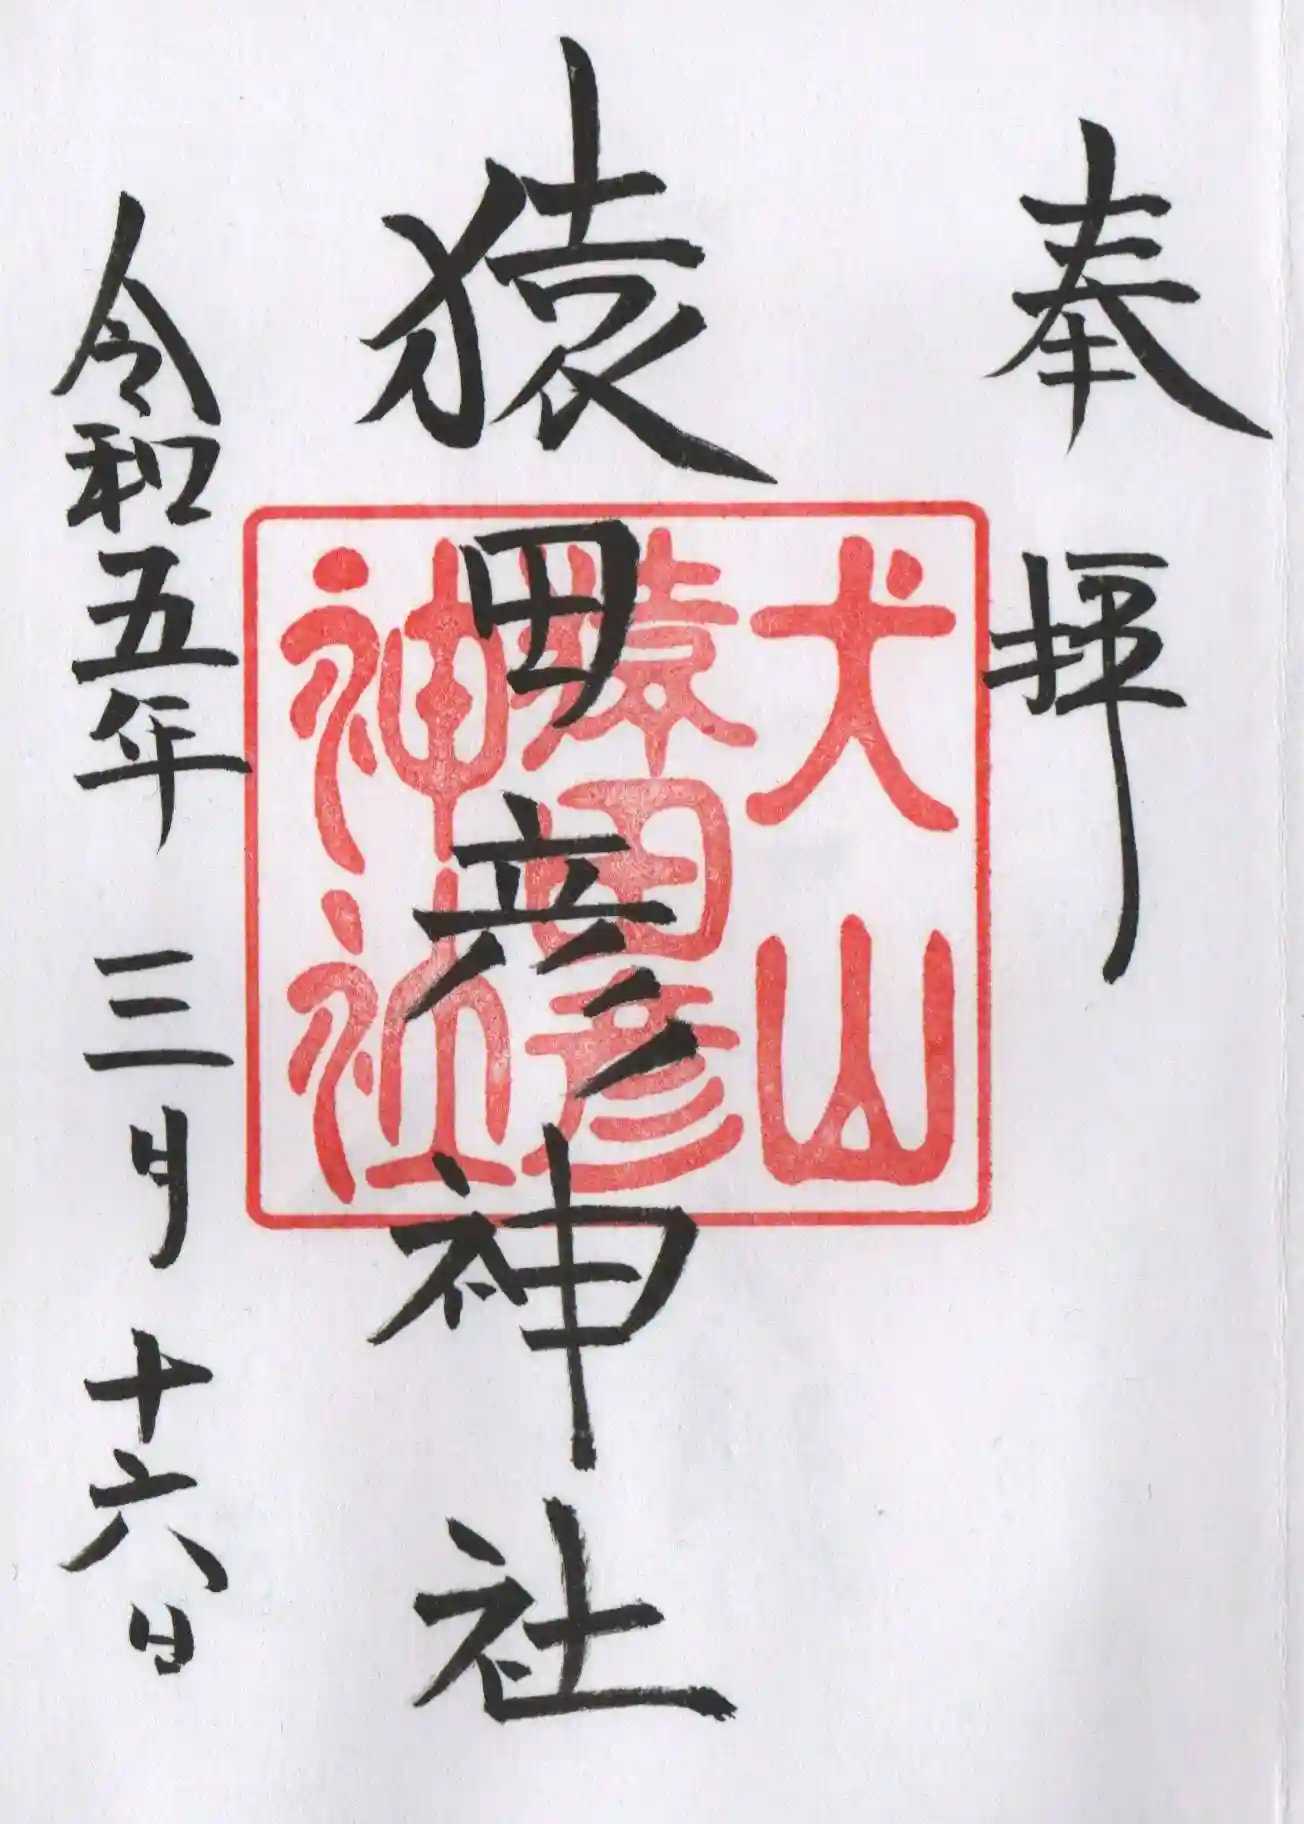 奉拝
猿田彦神社
令和五年 三月十六日
犬山
猿田彦
神社